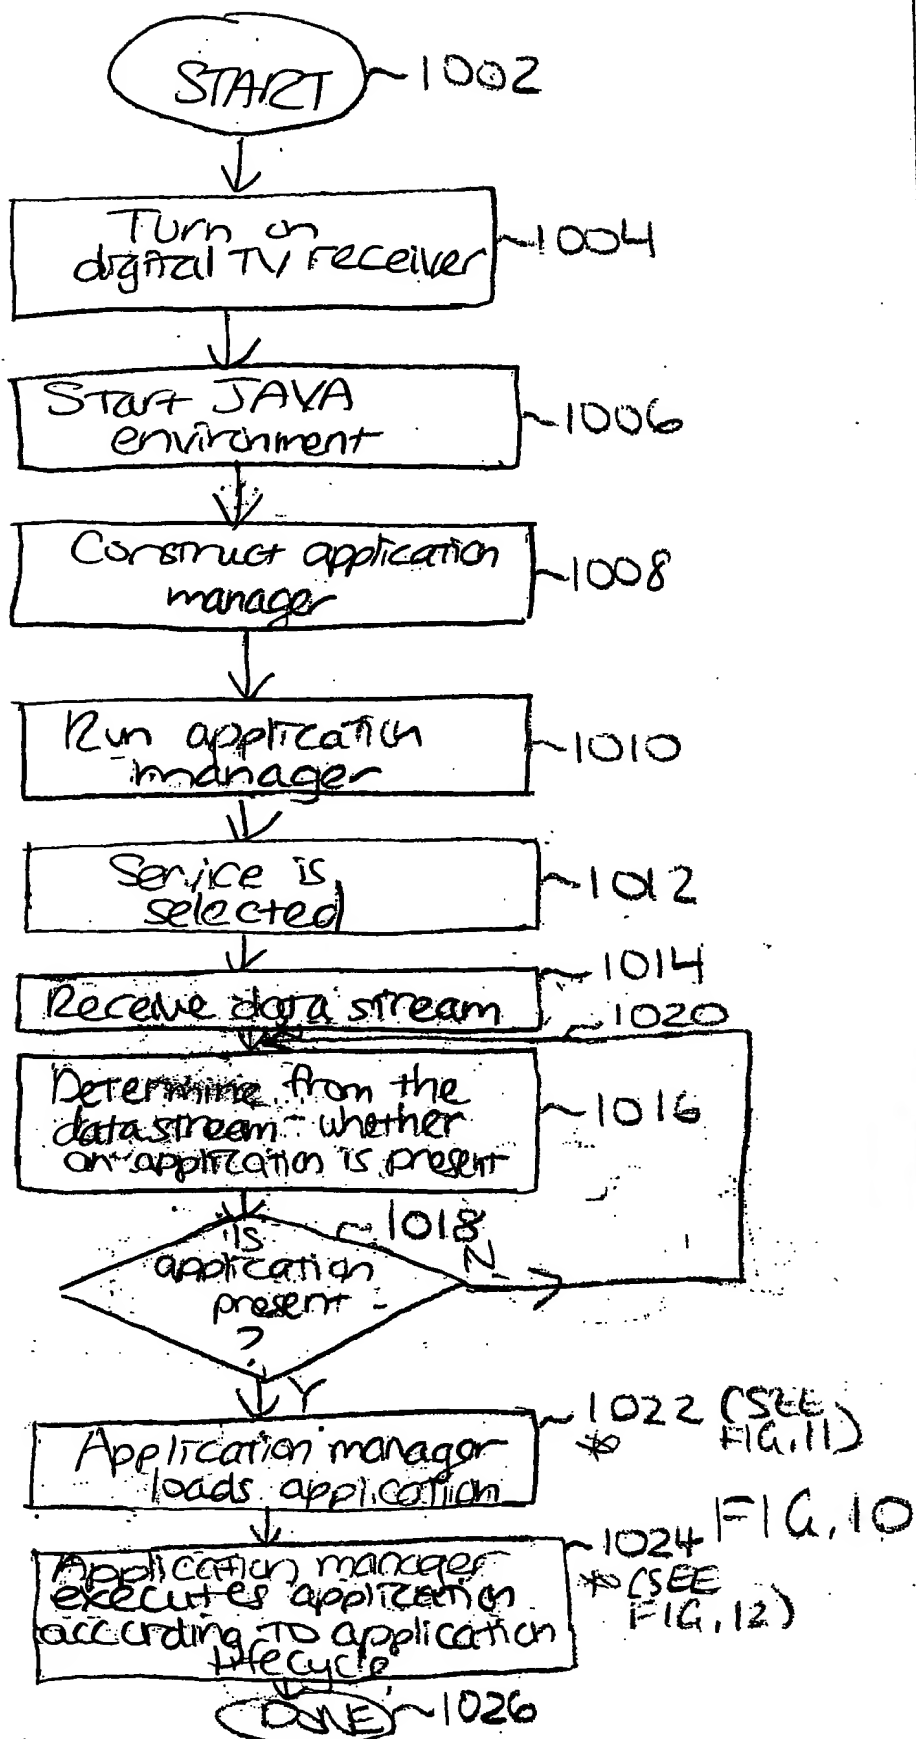 START
1002
Turn on
digital TV receiver
1004
Start JAVA
environment
1006
Construct application
manager
1008
Run application
manager
1010
Service is
selected
1012
1014
Receive data stream
1020
Determine from the
datastream whether
an application is present
1016
1018
Is
application
present
?
N
Y
1022 (SEE
* FIG. 11)
Application manager
loads application
FIG. 10
1024
* (SEE
FIG. 12)
Application manager
executes application
according to application
lifecycle
DONE
1026